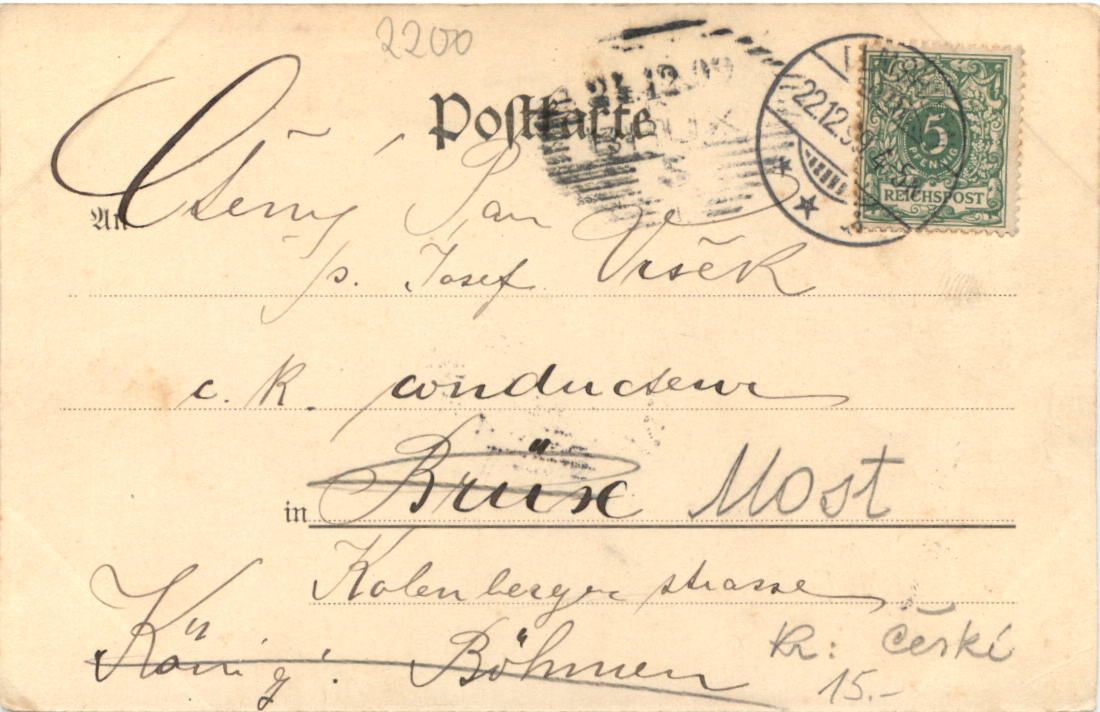 2200
Postkarte
24.12.99
22.12.99
5
PFENNIG
REICHSPOST
An
Pan
p. Josef Vršek
c. k. conducteur
in Brüx Most
Kolenbergerstrasse
König. Böhmen
kr: české
15.-